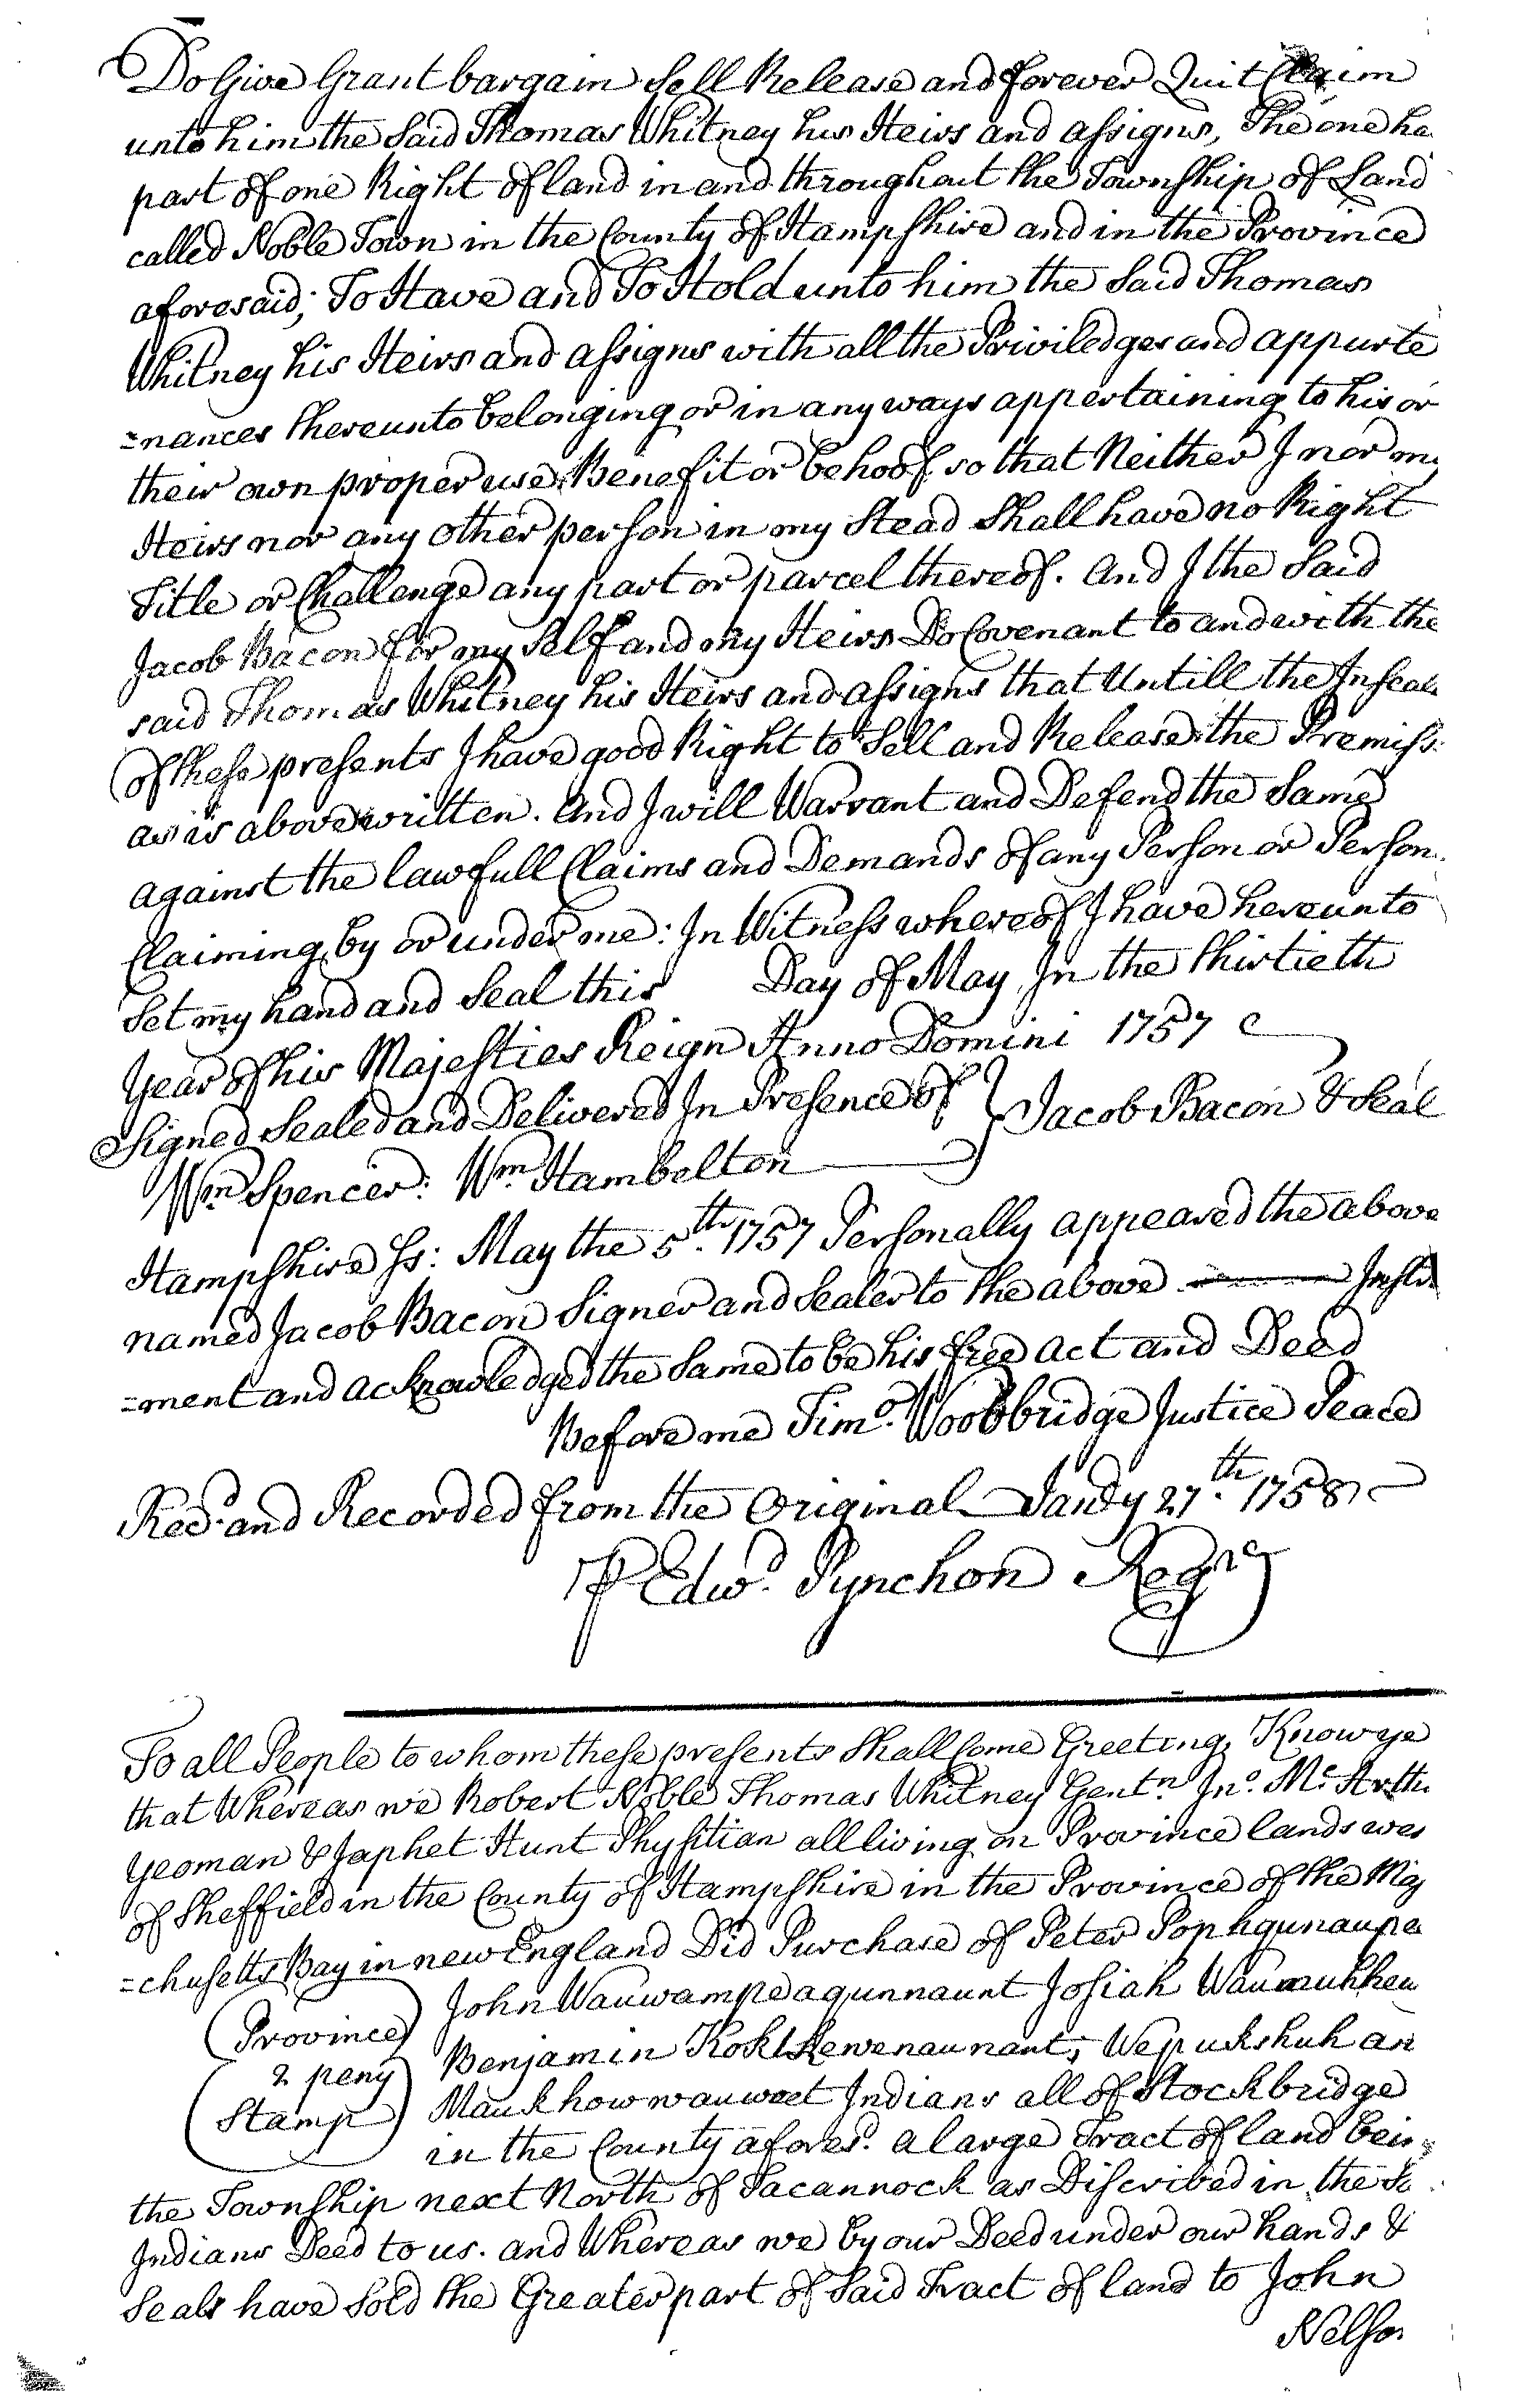 Do Give Grant bargain Sell Release and forever Quit Claim
unto him the Said Thomas Whitney his Heirs and assigns, The one ha
part of one Right of land in and throughout the Township of Land
called Noble Town in the County of Hampshire and in the Province
aforesaid; To Have and To Hold unto him the Said Thomas
Whitney his Heirs and assigns with all the Priviledges and appurte
=nances thereunto belonging or in any ways appertaining to his or
their own proper use, Benefit or behoof so that Neither I nor my
Heirs nor any other person in my Stead Shall have no Right
Title or Challenge any part or parcel thereof. And I the Said
Jacob Bacon for my Self and my Heirs Do Covenant to and with the
said Thomas Whitney his Heirs and assigns that Untill the Inseal
of these presents I have good Right to Sell and Release the Premiss
as is above written. And I will Warrant and Defend the Same
against the lawfull Claims and Demands of any Person or Person
Claiming by or under me: In Witness whereof I have hereunto
Set my hand and Seal this Day of May In the thirtieth
Year of his Majesties Reign Anno Domini 1757
Signed Sealed and Delivered In Presence of } Jacob Bacon & Seal
Wm Spencer: Wm Hambelton
Hampshire Ss: May the 5th. 1757 Personally appeared the above
named Jacob Bacon Signer and Sealer to the above Instru
=ment and acknowledged the Same to be his free act and Deed
Before me Timo. Woodbridge Justice Peace
Recd. and Recorded from the Original Janry 27th. 1758
P Edwd. Pynchon Regr
To all People to whom these presents Shall Come Greeting, Know ye
that Whereas we Robert Noble Thomas Whitney Gentn. Jno. Mc Arthu
Yeoman & Japhet Hunt Physitian all living on Province lands wes
of Sheffield in the County of Hampshire in the Province of the Mas
=chusetts Bay in new England Did Purchase of Peter Pophqunaupe
John Wauwampeaqunnaunt Josiah
(Province) Benjamin Wepuckshuh an
(2 peny Maukhowwauweet Indians all of Stockbridge
Stamp) in the County afores'd. a large Tract of land bein
the Township next North of Tacannock as Discribed in the
Indians Deed to us. and Whereas we by our Deed under our hands &
Seals have Sold the Greater part of Said Tract of land to John
Nelson